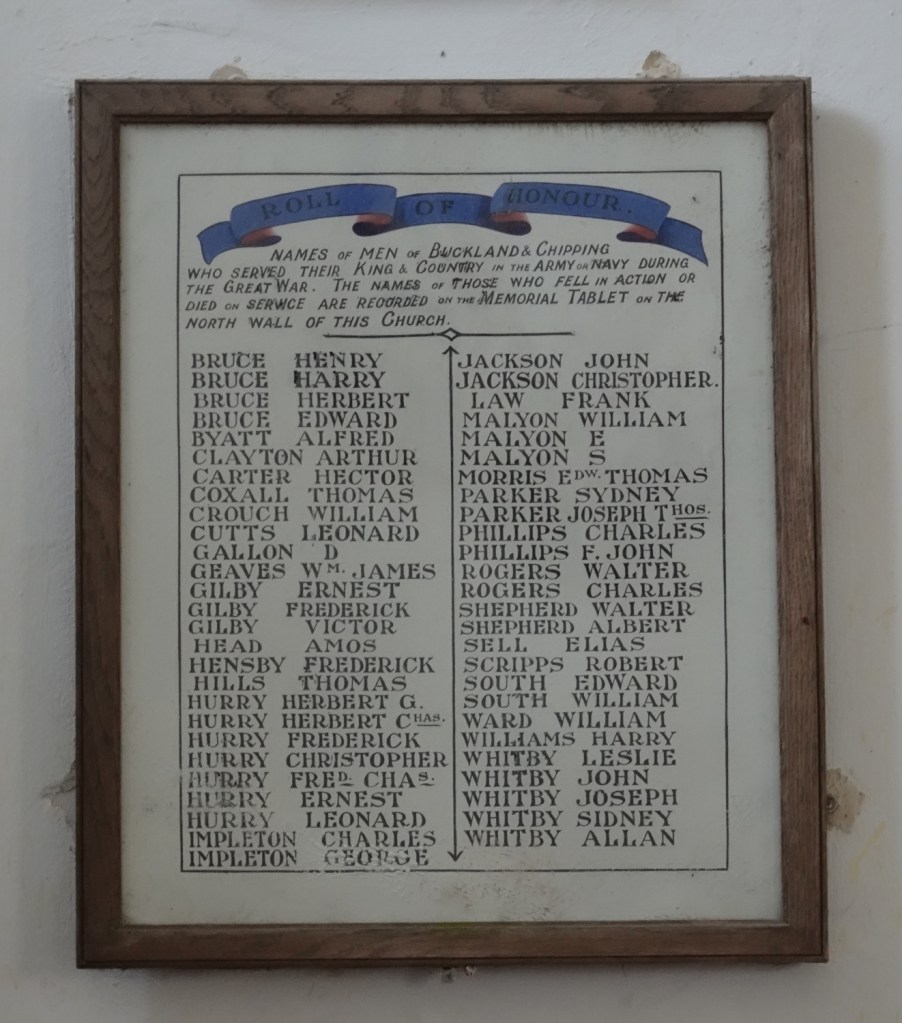 ROLL OF HONOUR.
NAMES OF MEN OF BUCKLAND & CHIPPING
WHO SERVED THEIR KING & COUNTRY IN THE ARMY OR NAVY DURING
THE GREAT WAR. THE NAMES OF THOSE WHO FELL IN ACTION OR
DIED ON SERVICE ARE RECORDED ON THE MEMORIAL TABLET ON THE
NORTH WALL OF THIS CHURCH.
BRUCE HENRY
BRUCE HARRY
BRUCE HERBERT
BRUCE EDWARD
BYATT ALFRED
CLAYTON ARTHUR
CARTER HECTOR
COXALL THOMAS
CROUCH WILLIAM
CUTTS LEONARD
GALLON D
GEAVES WM. JAMES
GILBY ERNEST
GILBY FREDERICK
GILBY VICTOR
HEAD AMOS
HENSBY FREDERICK
HILLS THOMAS
HURRY HERBERT G.
HURRY HERBERT CHAS.
HURRY FREDERICK
HURRY CHRISTOPHER
HURRY FRED. CHAS.
HURRY ERNEST
HURRY LEONARD
IMPLETON CHARLES
IMPLETON GEORGE
JACKSON JOHN
JACKSON CHRISTOPHER.
LAW FRANK
MALYON WILLIAM
MALYON E
MALYON S
MORRIS EDW. THOMAS
PARKER SYDNEY
PARKER JOSEPH THOS.
PHILLIPS CHARLES
PHILLIPS F. JOHN
ROGERS WALTER
ROGERS CHARLES
SHEPHERD WALTER
SHEPHERD ALBERT
SELL ELIAS
SCRIPPS ROBERT
SOUTH EDWARD
SOUTH WILLIAM
WARD WILLIAM
WILLIAMS HARRY
WHITBY LESLIE
WHITBY JOHN
WHITBY JOSEPH
WHITBY SIDNEY
WHITBY ALLAN